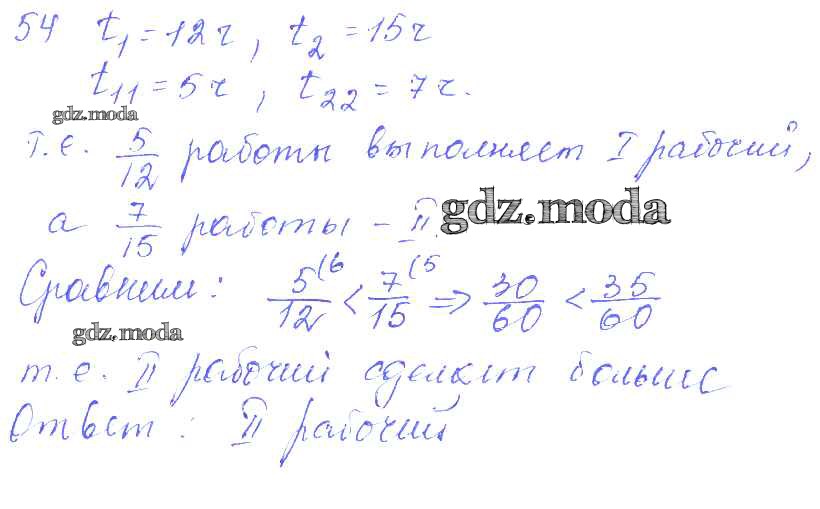 54 t₁ = 12 ч, t₂ = 15 ч
t₁₁ = 5 ч, t₂₂ = 7 ч.
gdz.moda
т.е. 5/12 работы выполняет I рабочий,
а 7/15 работы – II gdz.moda
Сравним: 5/12 (6 < 7/15 (5 => 30/60 < 35/60
gdz.moda
т.е. II рабочий сделает больше
Ответ: II рабочий